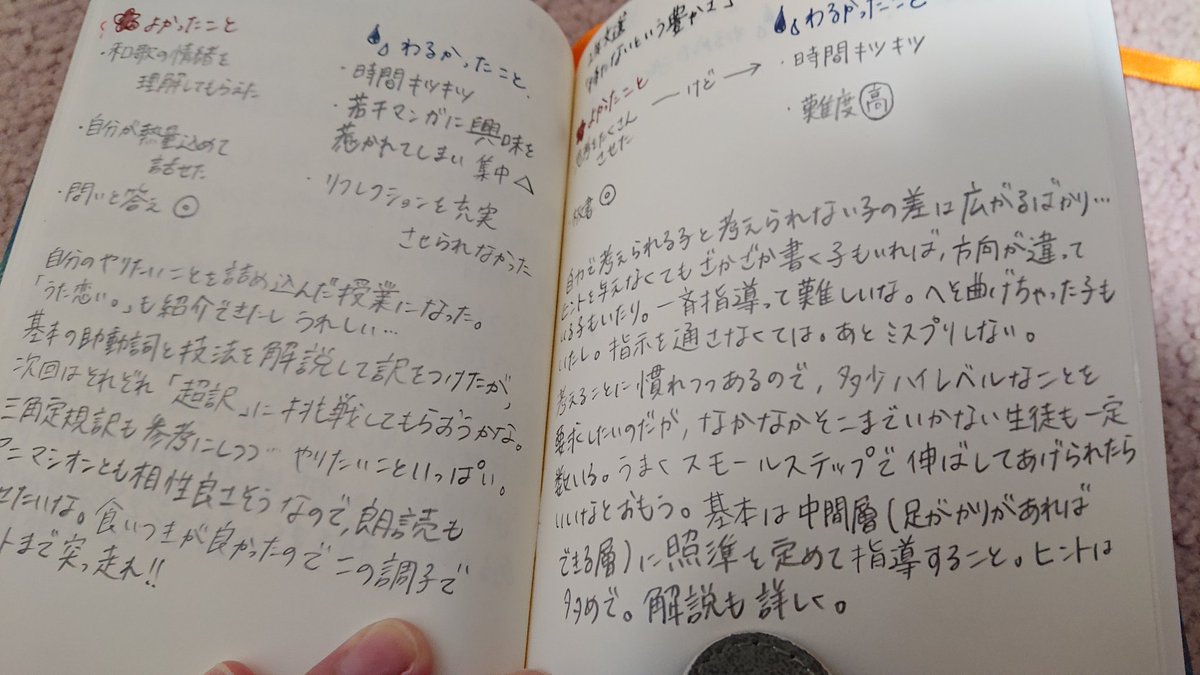 よかったこと
・和歌の情緒を
理解してもらえた
・自分が熱量込めて
話せた
・問いと答え ◎
わるかったこと
・時間キツキツ
・若干マンガに興味を
惹かれてしまい 集中△
・リフレクションを充実
させられなかった
自分のやりたいことを詰め込んだ授業になった。
「うた恋い。」も紹介できたし うれしい…
基本の助動詞と技法を解説して訳をつけたが、
次回はそれぞれ「超訳」に挑戦してもらおうかな。
三角定規訳も参考にしつつ… やりたいこといっぱい。
アニマシオンとも相性良さそうなので、朗読も
せたいな。食いつきが良かったので この調子で
トまで突っ走れ!!
ないという豊かさ」
よかったこと
たくさん
させた
板書 ◎
けど →
わるかったこと
・時間キツキツ
・難度 高
自力で考えられる子と考えられない子の差は広がるばかり…
ヒントを与えなくてもざかざか書く子もいれば、方向が違って
いる子もいたり。一斉指導って難しいな。へそ曲げちゃった子も
いたし。指示を通さなくては。あと ミスプリしない。
考えることに慣れつつあるので、多少ハイレベルなことを
要求したいのだが、なかなかそこまでいかない生徒も一定
数いる。うまくスモールステップで伸ばしてあげられたら
いいなとおもう。基本は中間層(足がかりがあれば
できる層)に照準を定めて指導すること。ヒントは
多めで。解説も詳しく。